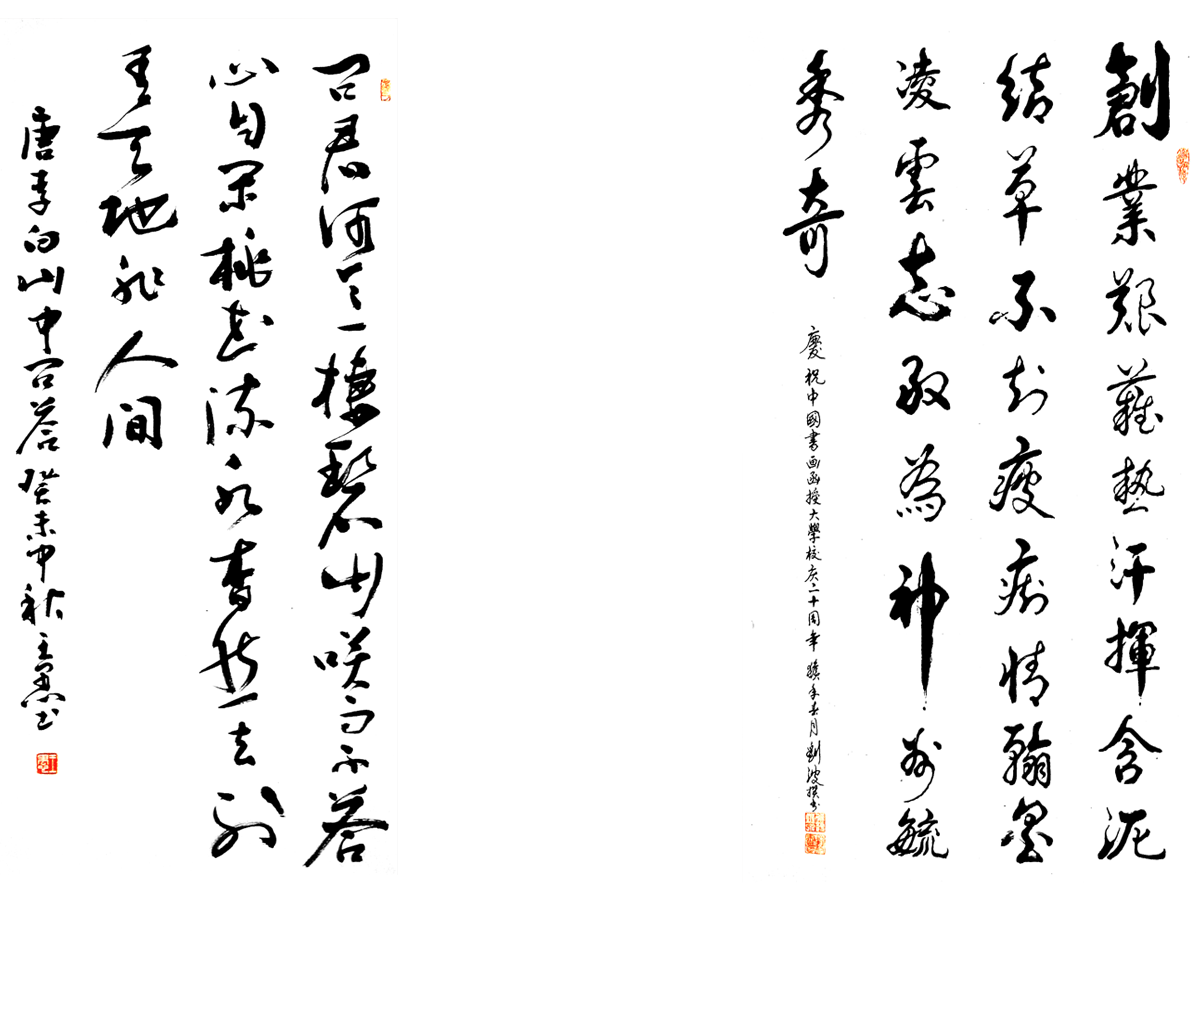 創業艱難熱汗揮含泥
結草不知瘦痴情翰墨
凌雲志敢為神州毓
秀奇
慶祝中國書画函授大學校庆二十周年 春月劉波撰书
问君何意棲碧山咲而不答
心自閑桃花流水杳然去別
有天地非人間
唐李白山中问答癸未中秋王书